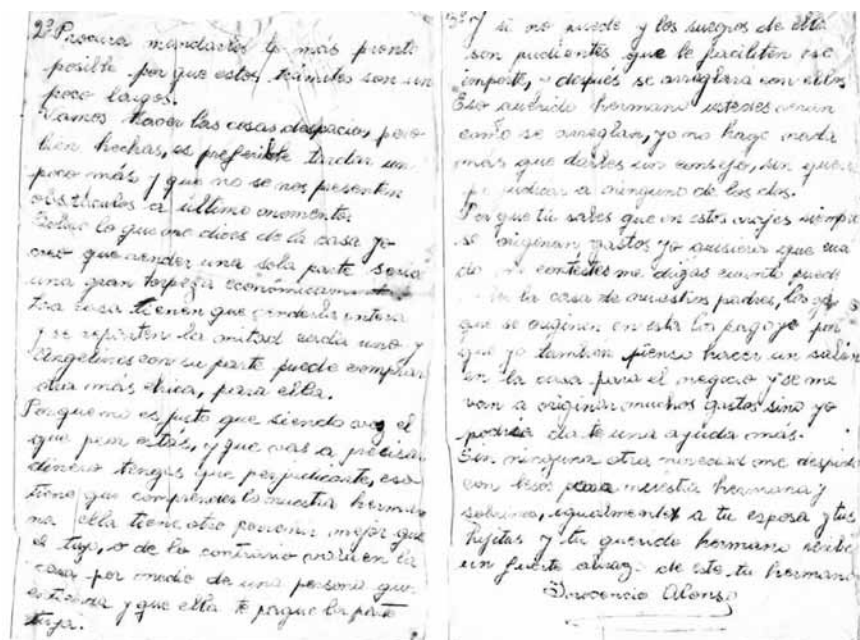 2º Procura mandarlos lo más pronto
posible por que estos trámites son un
poco largos.
Vamos hacer las cosas despacio, pero
bien hechas, es preferible tardar un
poco más y que no se nos presenten
obstáculos a último momento.
Sobre lo que me dices de la casa yo
creo que vender una sola parte seria
una gran torpeza económicamente
la casa tienen que venderla entera
y se reparten la mitad cada uno y
Angelines con su parte puede comprar
otra más chica, para ella.
Porque no es justo que siendo vos el
que peor estás, y que vas a precisar
dinero tengas que perjudicarte, eso
tiene que comprenderlo nuestra herma
na ella tiene otro porvenir mejor que
el tuyo, o de lo contrario en la
casa por medio de una persona que
entienda y que ella te pague la parte
tuya.
3º Y si no puede y los suegros de ella
son pudientes que le faciliten ese
importe, y después se arreglara con ellos
Eso querido hermano ustedes verán
como se arreglan, yo no hago nada
más que darles un consejo, sin querer
perjudicar a ninguno de los dos.
Por que tú sabes que en estos viajes siempre
se originan gastos yo quisiera que cua
do me contestes me digas cuanto puede
la casa de nuestros padres, los
que se originen en esta los pago yo por
que yo tambien pienso hacer un salón
en la casa para el negocio y se me
van a originar muchos gastos sino yo
podria darte una ayuda más.
Sin ninguna otra novedad me despido
con besos para nuestra hermana y
sobrinos, igualmente a tu esposa y tus
hijitas y tu querido hermano recibe
un fuerte abrazo de este tu hermano
Inocencio Alonso